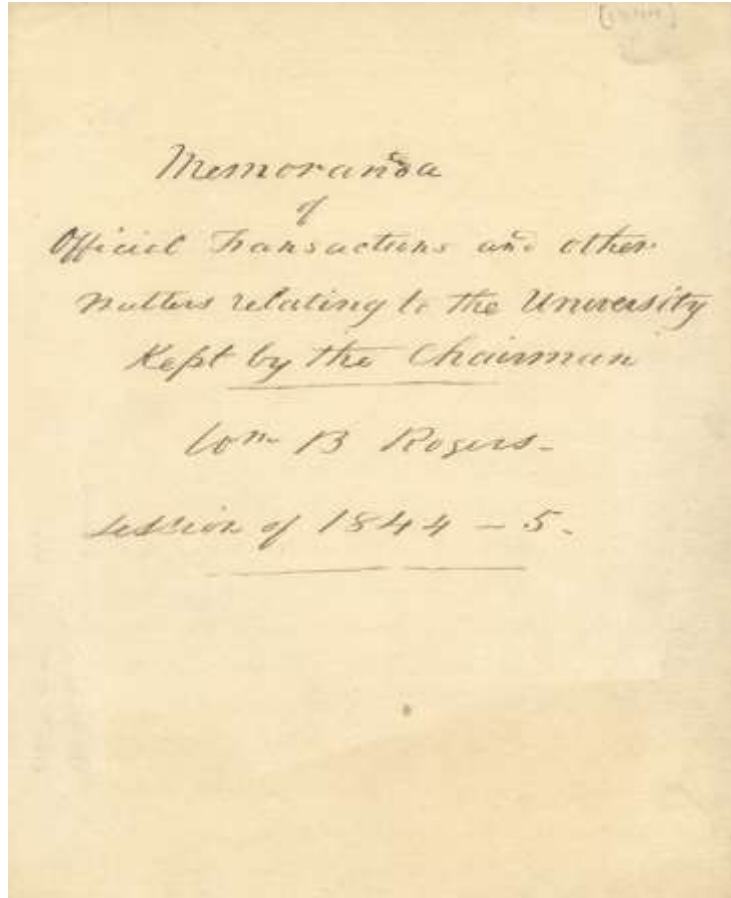 Memoranda
of
Official Transactions and other
matters relating to the University
Kept by the Chairman
Wm B Rogers-
Session of 1844 - 5.